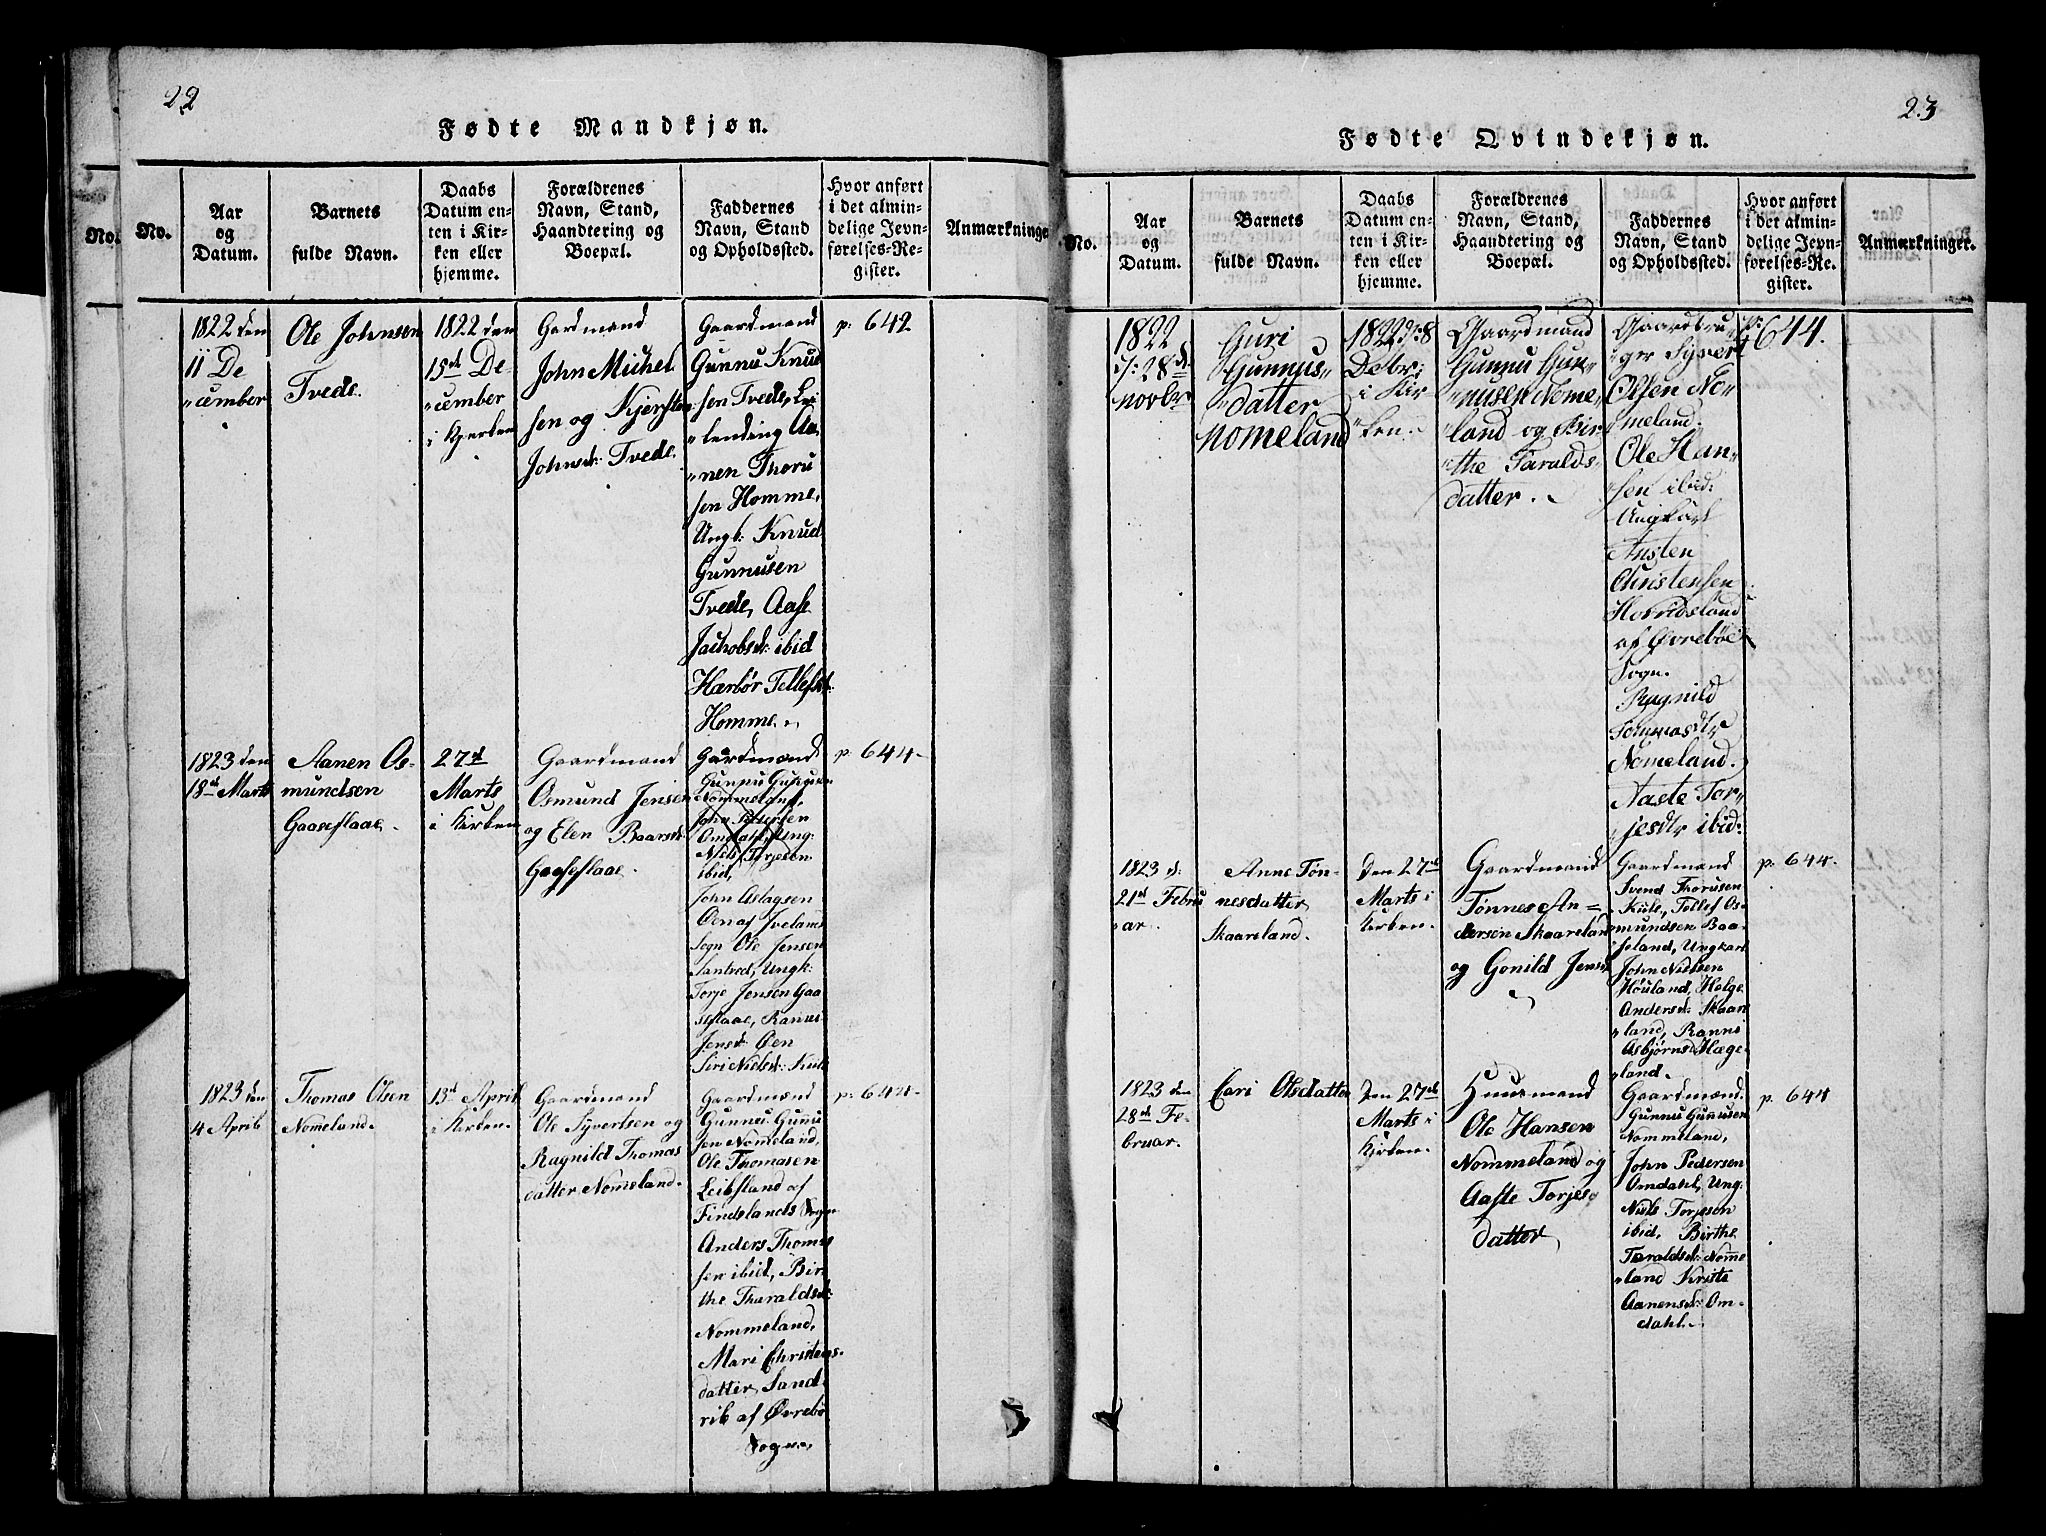 22
Fødte Mandkjøn.
No.
No.
Aar
og
Datum.
Barnets
fulde Navn.
Daabs
Datum en-
ten i Kir-
ken eller
hjemme.
Forældrenes
Navn, Stand,
Haandtering og
Boepæl.
Faddernes
Navn, Stand
og Opholdssted.
Hvor anført
i det almin-
delige Jevn-
førelses-Re-
gister.
Anmærkninger
1822 den
11 De
"cember
Ole Johnsen
Tvede.
1822 den
15de De-
"cember
i Kjerken
Gardmand
John Michel
sen og Kjersten
Johnsdr: Tvede.
Gaardmænd
Gunnu Knud
sen Tvede, Lei
"lending Aa,
"nen Thoru
sen Homme,
Ungk: Knud
Gunnusen
Tvede, Aase
Jachobsdr: ibid
Hærbør Tellefsdr:
Homme.
p: 642
1823 den
18de Marts
Aanen Os-
mundsen
Gaaseflaae.
27de
Marts
i Kirken
Gaardmand
Osmund Jensen
og Elen Baarsdr:
Gaaseflaae.
Gardmænd
Gunnu Gunnusen
Nommeland,
John Pedersen
Omdahl, Ung:
Niels Torjesen
ibid,
John Aslagsen
Øen af Iveland
Sogn Ole Jensen
Santved, Ungk:
Torje Jensen Gaa
seflaae, Rannei
Jensdr: Øen
Siri Nielsdr: Kule
p: 644-
1823 den
4 Aprib
Thomas Olsen
Nomeland.
13de April
i Kirken.
Gaardmand
Ole Syvertsen og
Ragnild Thomas
datter Nomeland.
Gaardmænd
Gunnu Gunnu
sen Nomeland,
Ole Thomasen
Leibsland af
Findslands Sogn
Anders Thomas
sen ibid, Bir
the Tharaldsdr:
Nommeland,
Mari Christens-
datter Sand
rib af Øvrebø
Sogn.
p: 644-
23
Fødte Qvindekjøn.
No.
Aar
og
Datum.
Barnets
fulde Navn.
Daabs
Datum en-
ten i Kir-
ken eller
hjemme.
Forældrenes
Navn, Stand,
Haandtering og
Boepæl.
Faddernes
Navn, Stand
og Opholdssted.
Hvor anført
i det almin-
delige Jevn-
førelses-Re-
gister.
Anmærkninger.
1822
d: 28de
Novbr
Guri
Gunnus-
"datter
Nomeland
1822 d: 8
Debr:
i Kir
"ken.
Gaardmand
Gunnu Gun-
"nusen Nome,
land og Bir
"the Taralds-
datter.
Gaardbru
"ger Syvert
Olsen No-
"meland.
Ole Han-
"sen ibid:
Ungkarl
Austen
Christensen
Hovidsland
af Øvrebøe
Sogn.
Ragnild
Tommasdtr
Nomeland.
Aaste Tor-
"jesdtr ibid:
p: 644.
1823 d:
21de Febru
"ar.
Anne Tøn-
nesdatter
Skaareland.
Den 27de
Marts i
Kirken.
Gaardmand
Tønnes An=
dersen Skaareland
og Gonild Jensdr
Gaardmænd
Svend Thorusen
Kule, Tellef Os-
mundsen Baa-
seland, Ungkarl
John Nielsen
Høuland, Helge
Andersdr: Skaare
"land, Ranni
Asbjørnsdr Hæge-
land.
p: 644-
1823 den
28de Fe-
bruar.
Cari Olsdatter
Den 27de
Marts i
Kjrken.
Huusmand
Ole Hansen
Nommeland og
Aaste Torjes-
datter
Gaardmænd.
Gunnu Gunnusen
Nommeland,
John Pedersen
Omdahl, Ung:
Niels Torjesen
ibid, Birthe
Taraldsdr: Nomme
"land Kriste
Aanensdr: Om-
dahl.
p. 644